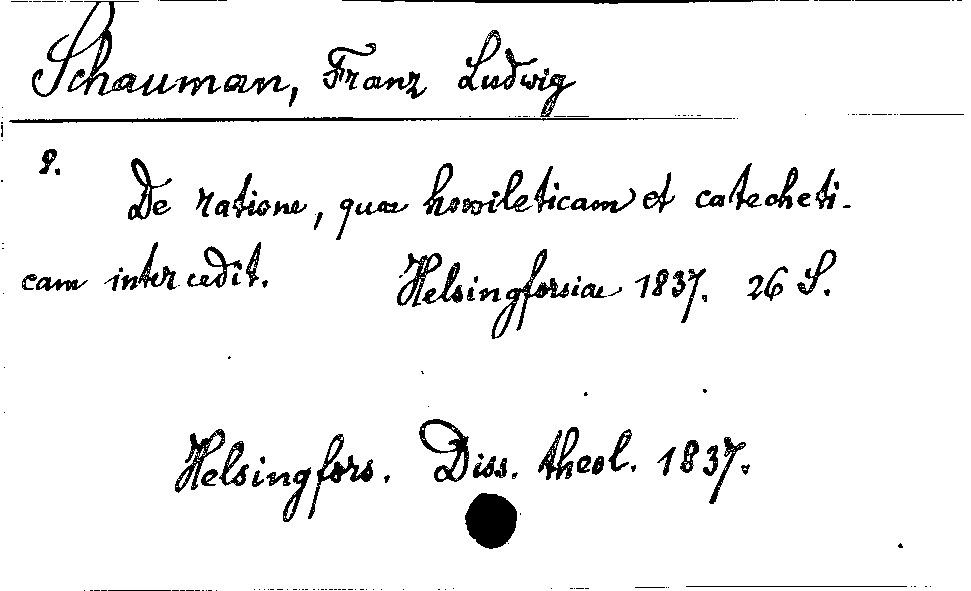 Schauman, Franz Ludwig
8.
De ratione, quae homileticam et catecheti-
cam intercedit. Helsingforsiae 1837. 26 S.
Helsingfors. Diss. theol. 1837.